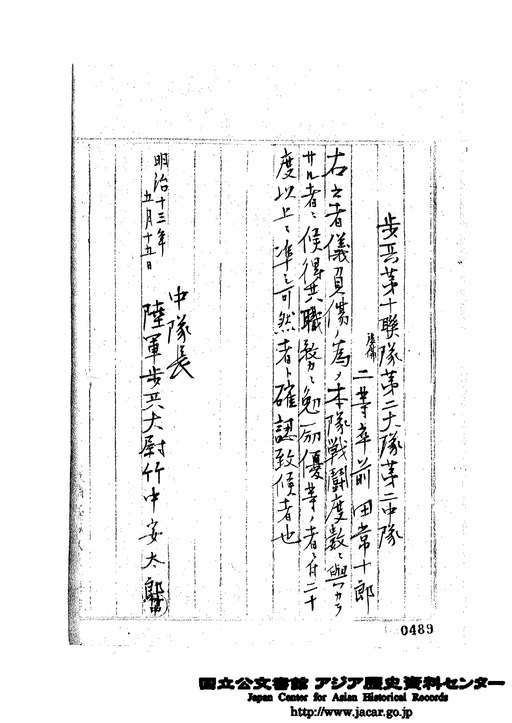 歩兵第十聯隊第二大隊第二中隊
後備
二等卒前田常十郎
右之者儀負傷ノ為メ本隊戦闘度数ニ與カラ
サル者ニ候得共職務ニ勉励優等ノ者ニ付二十
度以上ニ準シ可然者ト確認致候者也
明治十三年
五月十五日
中隊長
陸軍歩兵大尉竹中安太郎
0489
国立公文書館 アジア歴史資料センター
Japan Center for Asian Historical Records
http://www.jacar.go.jp